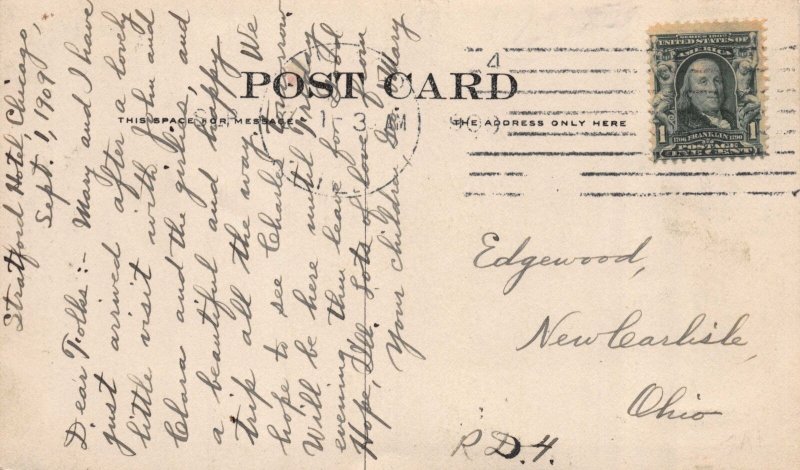 POST CARD
THIS SPACE FOR MESSAGE
THE ADDRESS ONLY HERE
SERIES 1902
UNITED STATES OF
AMERICA
1706 FRANKLIN 1790
1 POSTAGE 1
ONE CENT
4
1 - 3 AM
1909
Stratford Hotel Chicago,
Sept. 1, 1909,
Dear Folks:- Mary and I have
just arrived after a lovely
little visit with John and
Clara and the girlies, and
a beautiful and happy
trip all the way. We
hope to see Charles tomorrow
Will be here until Friday
evening, then leave for
Hope, Ill. Lots of love from
Your children and Mary
Edgewood,
New Carlisle,
Ohio
R D. 4.